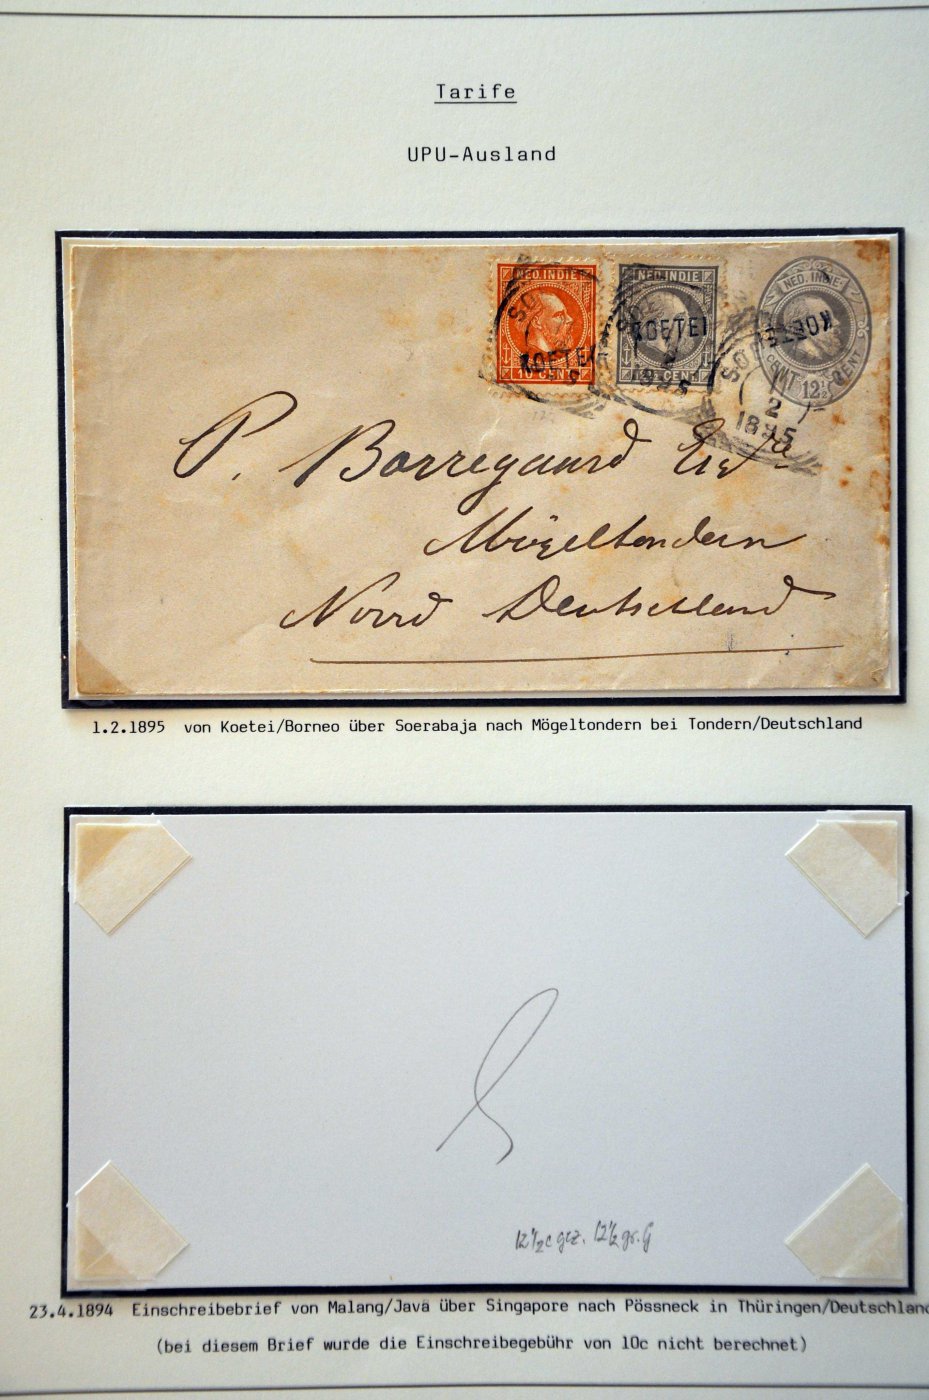 Tarife
UPU-Ausland
NED. INDIE
KOETEI
10 CENT
NED. INDIE
KOETEI
2
1895
CENT.
NED. INDIE
KOETEI
CENT 12½ CENT
SOE
2
1895
P. Borregaard Esqre
Mögeltondern
Nord Deutschland
1.2.1895 von Koetei/Borneo über Soerabaja nach Mögeltondern bei Tondern/Deutschland
12½c gez. 12½ gr. G
23.4.1894 Einschreibebrief von Malang/Java über Singapore nach Pössneck in Thüringen/Deutschland
(bei diesem Brief wurde die Einschreibegebühr von 10c nicht berechnet)